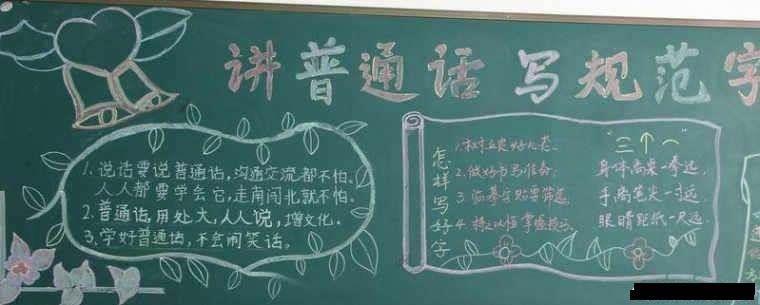 讲普通话 写规范字
1.说话要说普通话,沟通交流都不怕.
人人都要学会它,走南闯北就不怕.
2.普通话用处大,人人说,增文化。
3.学好普通话,不会闹笑话。
怎样写好字
1.树立
2.做好书写准备;
3.临摹字帖要
4.持之以恒掌握技巧.
"三个一"
身体离桌一拳远,
手离笔尖一寸远,
眼睛距纸一尺远.